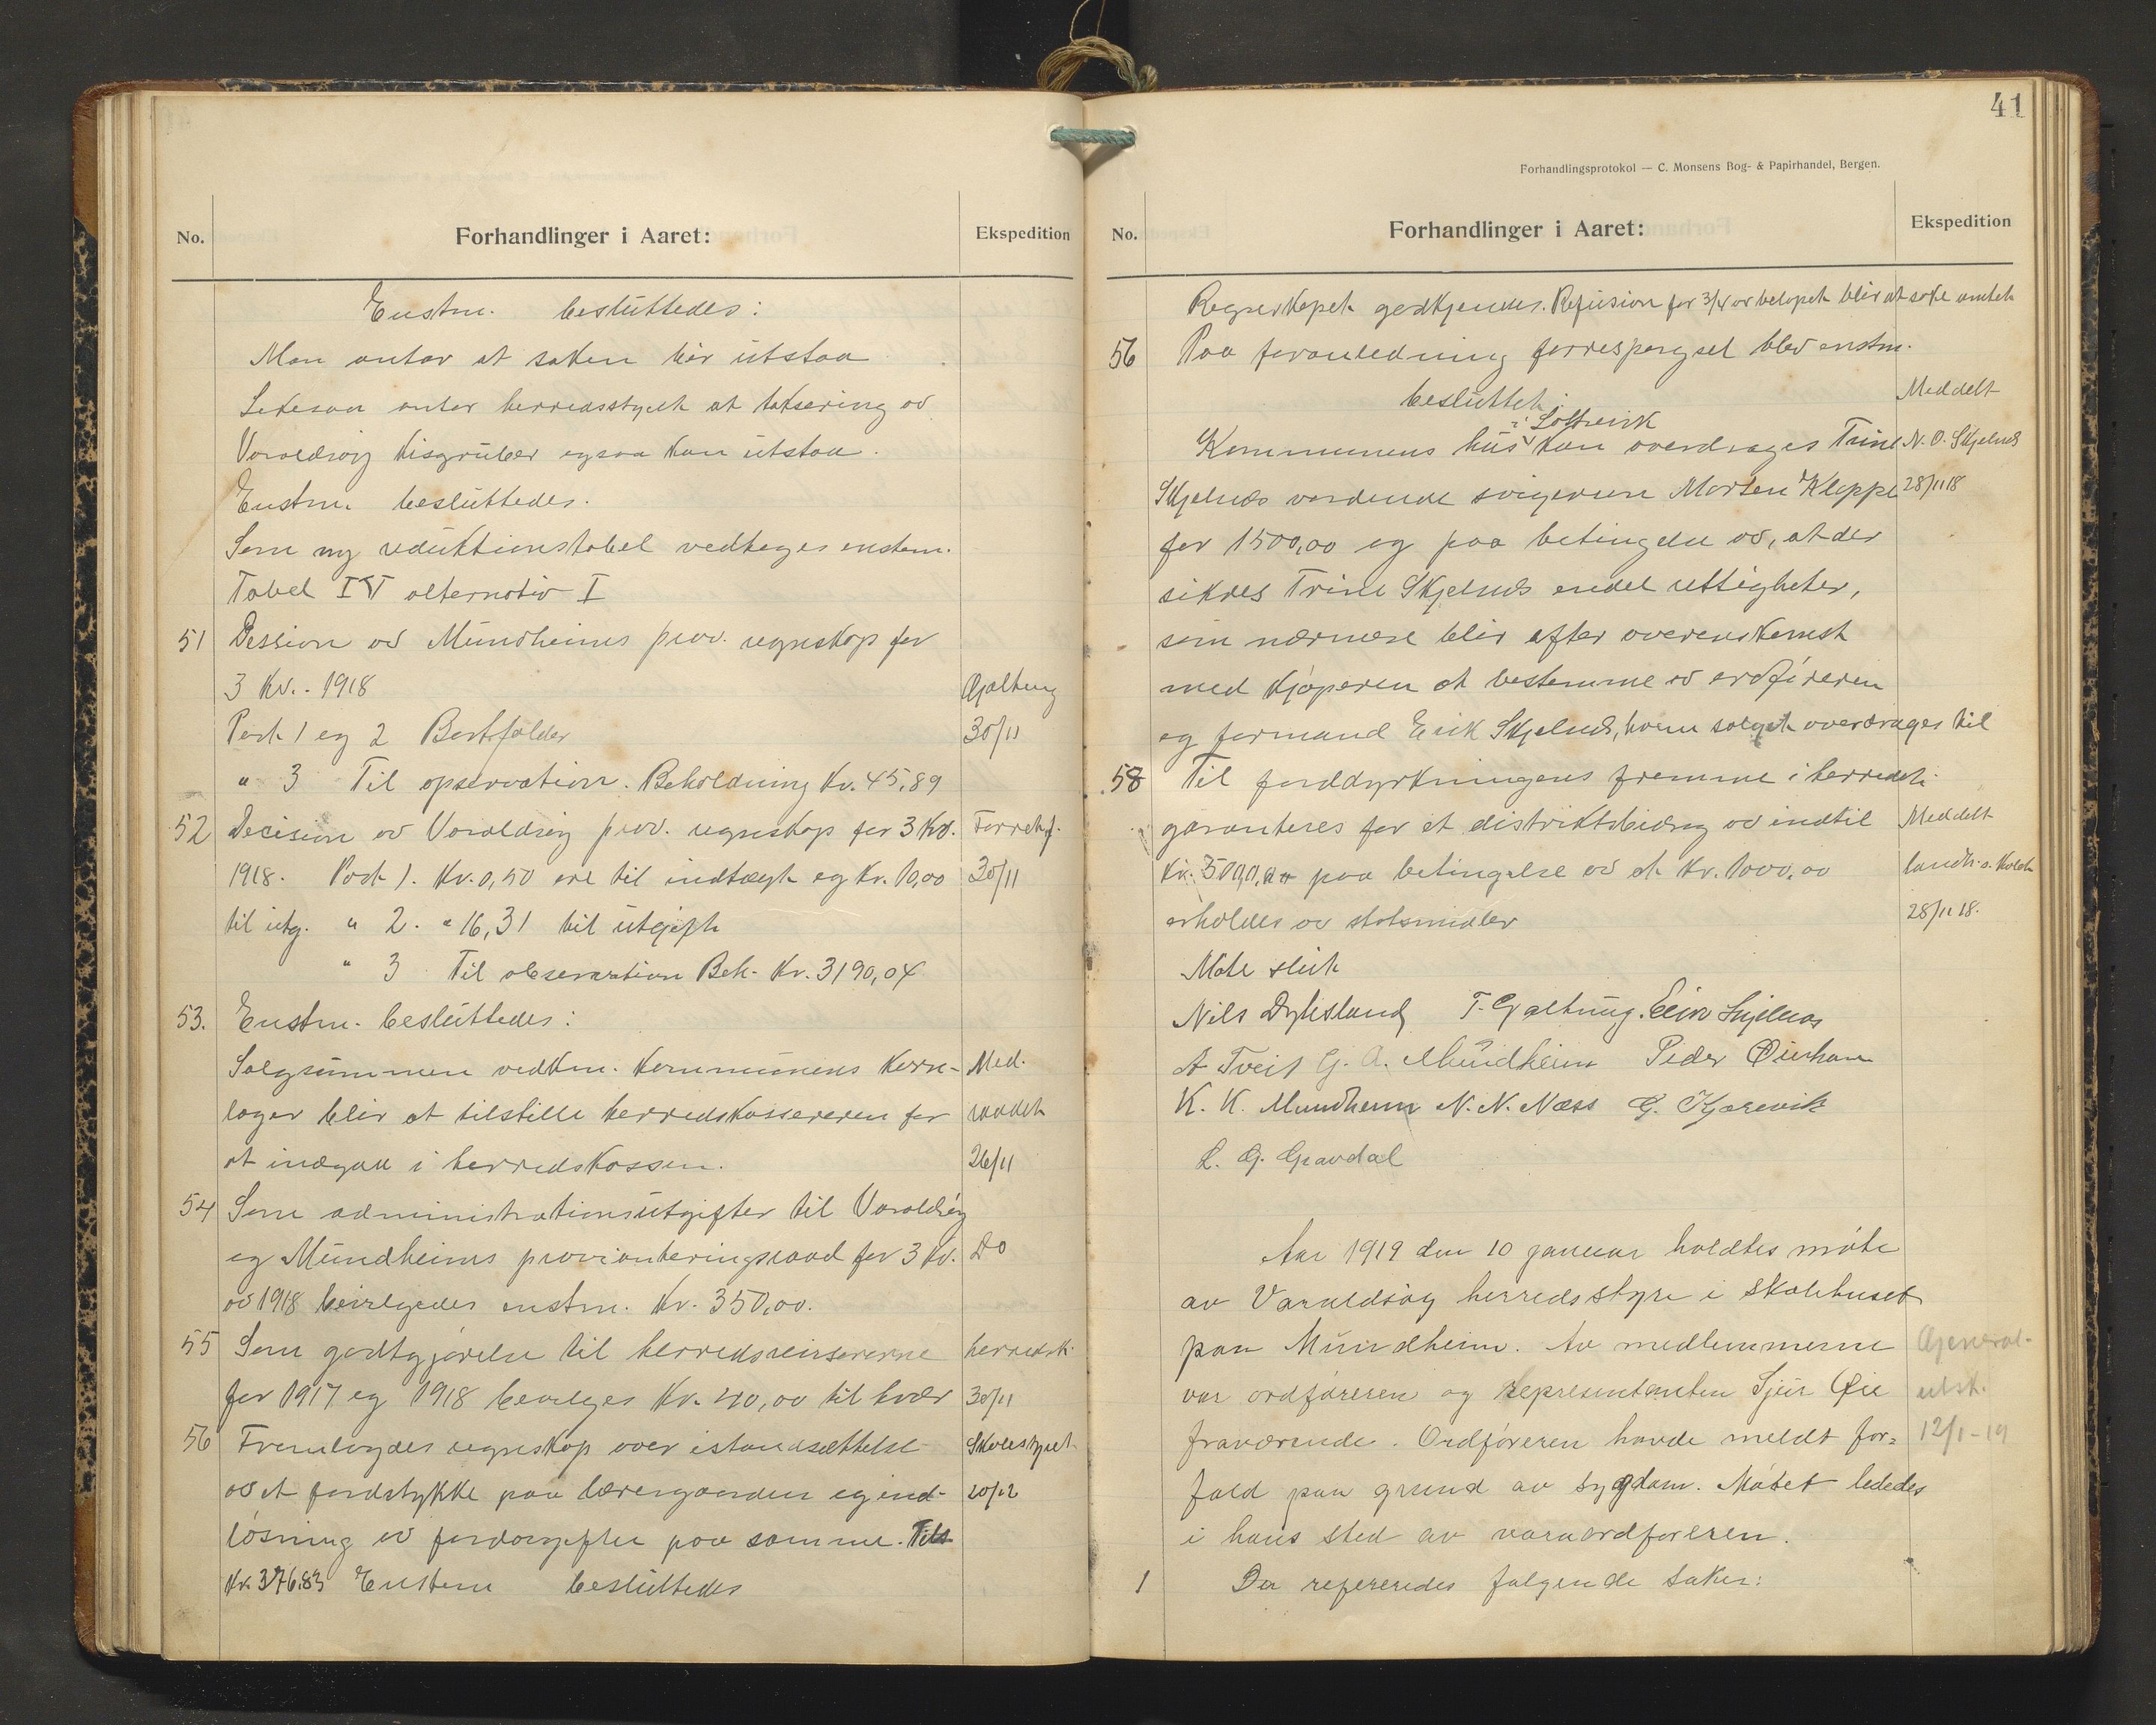 No.
Forhandlinger i Aaret:
Ekspedition
Enstm. besluttedes:
Man antar at saken bør utstaa
Likesaa antar herredsstyret at taksering av
Varaldsøy kisgruber ogsaa kan utstaa.
Enstm. besluttedes.
Som ny reduktionstabel vedtoges enstem.
Tabel IV alternativ I
51 Desision av Mundheims prov. regnskap for
3 Kv. 1918 Gjaltung
Post 1 og 2 Bortfalder 30/11
" 3 Til opservation. Beholdning Kr. 45,89
52 Decision av Varaldsøy prov. regnskap for 3 Kv. Forretnf.
1918. Post 1. Kr. 0,50 øre til indtægt og Kr. 10,00 30/11
til utg. " 2. " 16,31 til utgift
" 3 Til observartion Beh. Kr. 3190,04
53. Enstm. besluttedes:
Salgsummen vedkm. kommunens korn- Med.
lager blir at tilstille herredskassereren for raadet
at indgaa i herredskassen. 26/11
54 Som administrationsutgifter til Varaldsøy
og Mundheims provianteringsraad for 3 Kv. Do
av 1918 bevilgedes enstm. Kr. 350,00.
55 Som godtgjørelse til herredsrevisorerne herredsk.
for 1917 og 1918 bevilges Kr. 40,00 til hver 30/11
56 Fremlagdes regnskap over istandsættelse Skolestyret
av et jordstykke paa lærergaarden og ind- 20/12
løsning av jordavgifter paa samme.
Kr. 376.83 Enstem besluttedes
41
Forhandlingsprotokol — C. Monsens Bog- & Papirhandel, Bergen.
No.
Forhandlinger i Aaret:
Ekspedition
Regnskapet godkjendes. Refusion for 3/4 av beløpet blir at søke amtet
56 Paa foranledning forrespørgsel blev enstm.
besluttet: Meddelt
i Løftveik
Kommunens hus kan overdrages Trine N. O. Skjelnes
Skjelnæs vordende svigersøn Morten Kleppe 28/11 18
for 1500,00 og paa betingelse av, at der
sikres Trine Skjelnæs endel rettigheter,
som nærmere blir efter overenskomst
med kjøperen at bestemme av ordføreren
og formand Erik Skjelnæs, hvem salget overdrages til
58 Til jorddyrkningens fremme i herredet
garanteres for et distriktsbidrag av indtil Meddelt
Kr. 500,00 paa betingelse av at Kr. 1000,00 landh.s. Kvch
erholdes av statsmidler 28/11 18.
Møte slut
Nils Dyrhsland T. Gjaltung. Eirik Skjelnes
A Tveit G. A. Mundheim Peder Øierhavn
K. K. Mundheim N. N. Næss G. Kjærevik
L. G. Gravdal
Aar 1919 den 10 januar holdtes møte
av Varaldsøy herredsstyre i skolehuset
paa Mundheim. Av medlemmerne General-
var ordføreren og representanten Sjur Øie utsk.
fraværende. Ordføreren havde meldt for- 12/1-19
fald paa grund av sygdom. Møtet lededes
i hans sted av varaordføreren.
1 Der refereredes følgende saker: